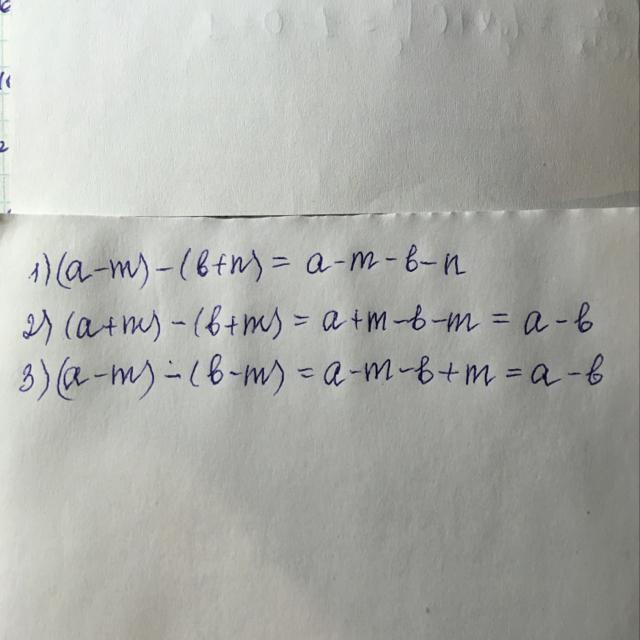 1) (a-m) - (в+n) = a-m-в-n
2) (a+m) - (в+m) = a+m-в-m = a-в
3) (a-m) - (в-m) = a-m-в+m = a-в